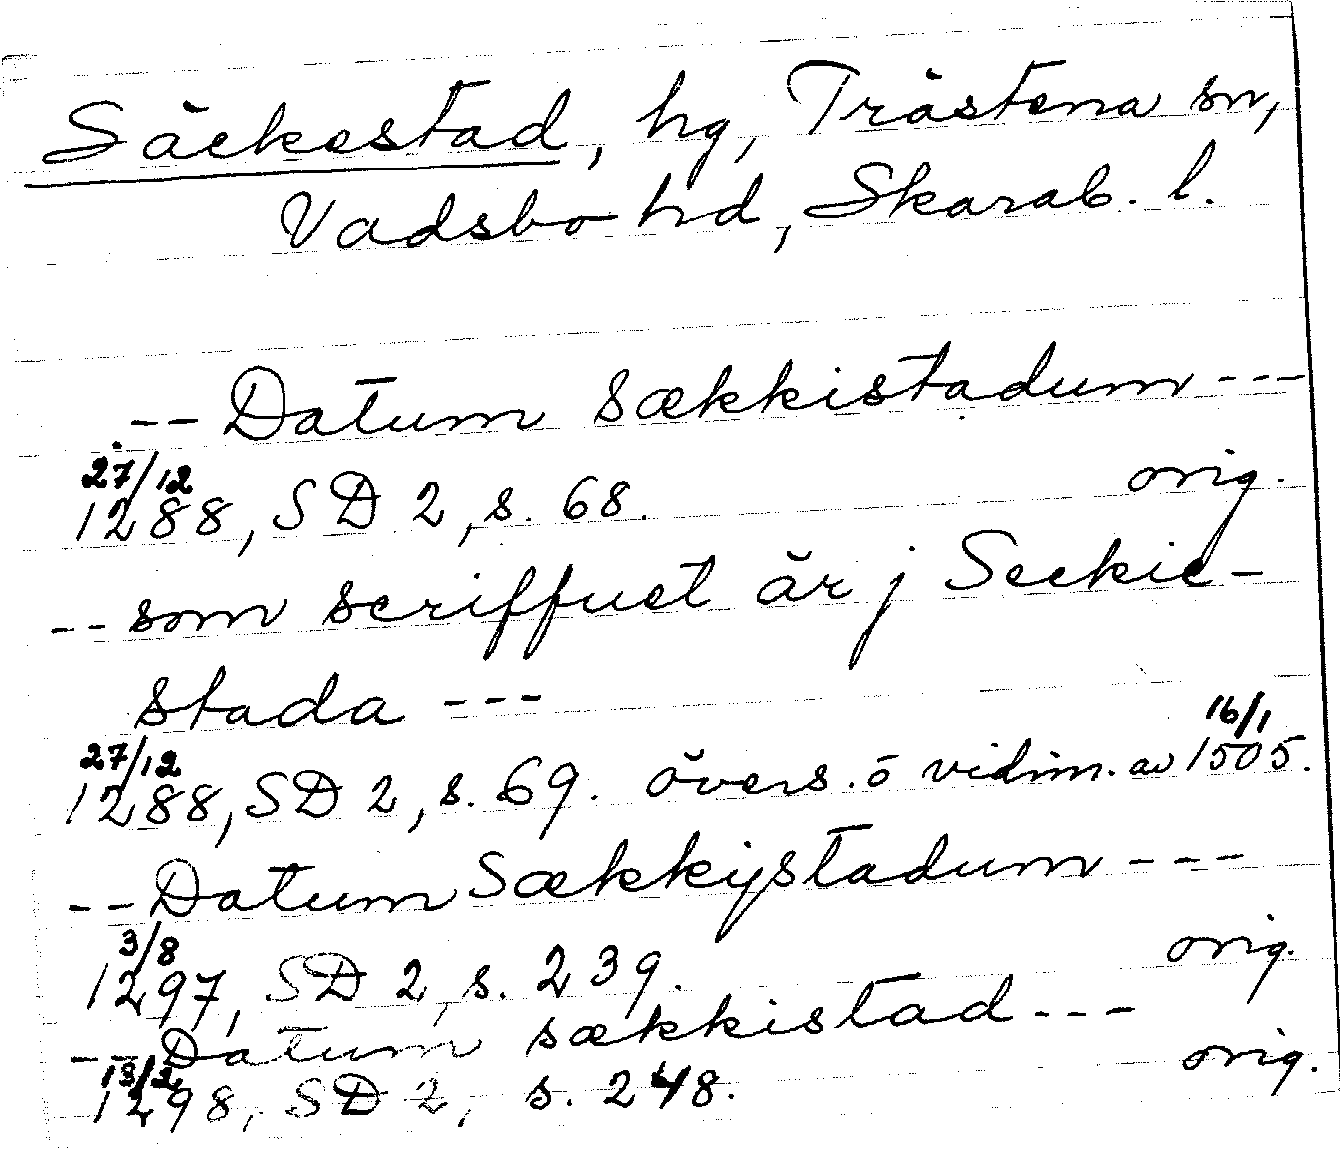 Säckestad, hg, Trästena sn,
Vadsbo hd, Skarab. l.
-- Datum sækkistadum ---
27/12 1288, SD 2, s. 68. orig.
-- som scriffuet är j Seckie-
stada ---
27/12 1288, SD 2, s. 69. övers. ö vidim. av 16/1 1505.
-- Datum Sækkystadum ---
3/8 1297, SD 2, s. 239. orig.
-- Datum sækkistad ---
13/2 1298, SD 2, s. 248. orig.